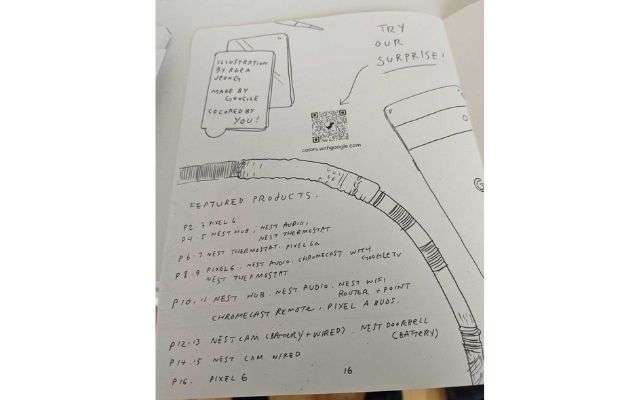 TRY
OUR
SURPRISE!
ILLUSTRATION
BY RHEA
JEONG
MADE BY
GOOGLE
COLORED BY
YOU!
colors.withgoogle.com
FEATURED PRODUCTS.
P2-3 PIXEL 6
P4-5 NEST HUB, NEST AUDIO,
NEST THERMOSTAT
P6-7 NEST THERMOSTAT. PIXEL 6A
P8-9 PIXEL 6, NEST AUDIO. CHROMECAST WITH
GOOGLE TV
NEST THERMOSTAT
P10-11 NEST HUB. NEST AUDIO. NEST WIFI
ROUTER + POINT
CHROMECAST REMOTE. PIXEL A BUDS.
P12-13 NEST CAM (BATTERY + WIRED). NEST DOORBELL
(BATTERY)
P14-15 NEST CAM WIRED
P16. PIXEL 6
16